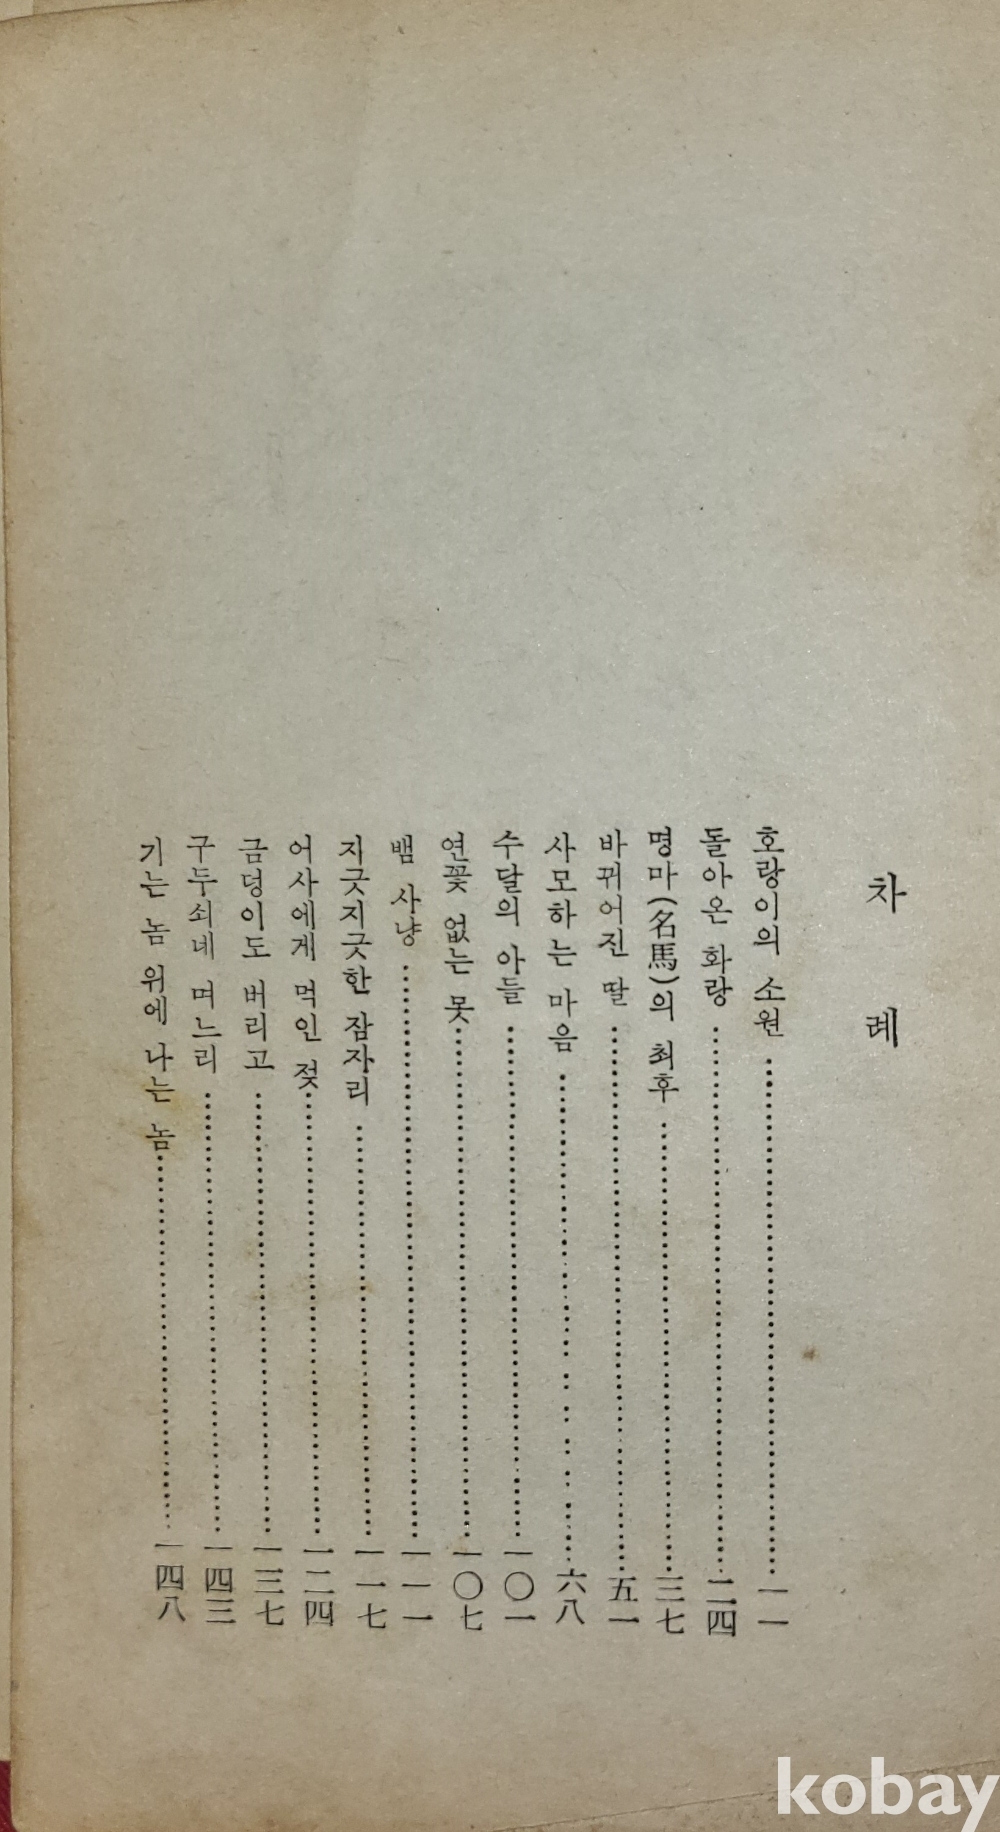 차 례
호랑이의 소원 ⋯⋯⋯⋯ 一一
돌아온 화랑 ⋯⋯⋯⋯ 二四
명마(名馬)의 최후 ⋯⋯⋯⋯ 三七
바뀌어진 딸 ⋯⋯⋯⋯ 五一
사모하는 마음 ⋯⋯⋯⋯ 六八
수달의 아들 ⋯⋯⋯⋯ 一〇一
연꽃 없는 못 ⋯⋯⋯⋯ 一〇七
뱀 사냥 ⋯⋯⋯⋯ 一一一
지긋지긋한 잠자리 ⋯⋯⋯⋯ 一一七
어사에게 먹인 젖 ⋯⋯⋯⋯ 一二四
금덩이도 버리고 ⋯⋯⋯⋯ 一三七
구두쇠네 며느리 ⋯⋯⋯⋯ 一四三
기는 놈 위에 나는 놈 ⋯⋯⋯⋯ 一四八
kobay